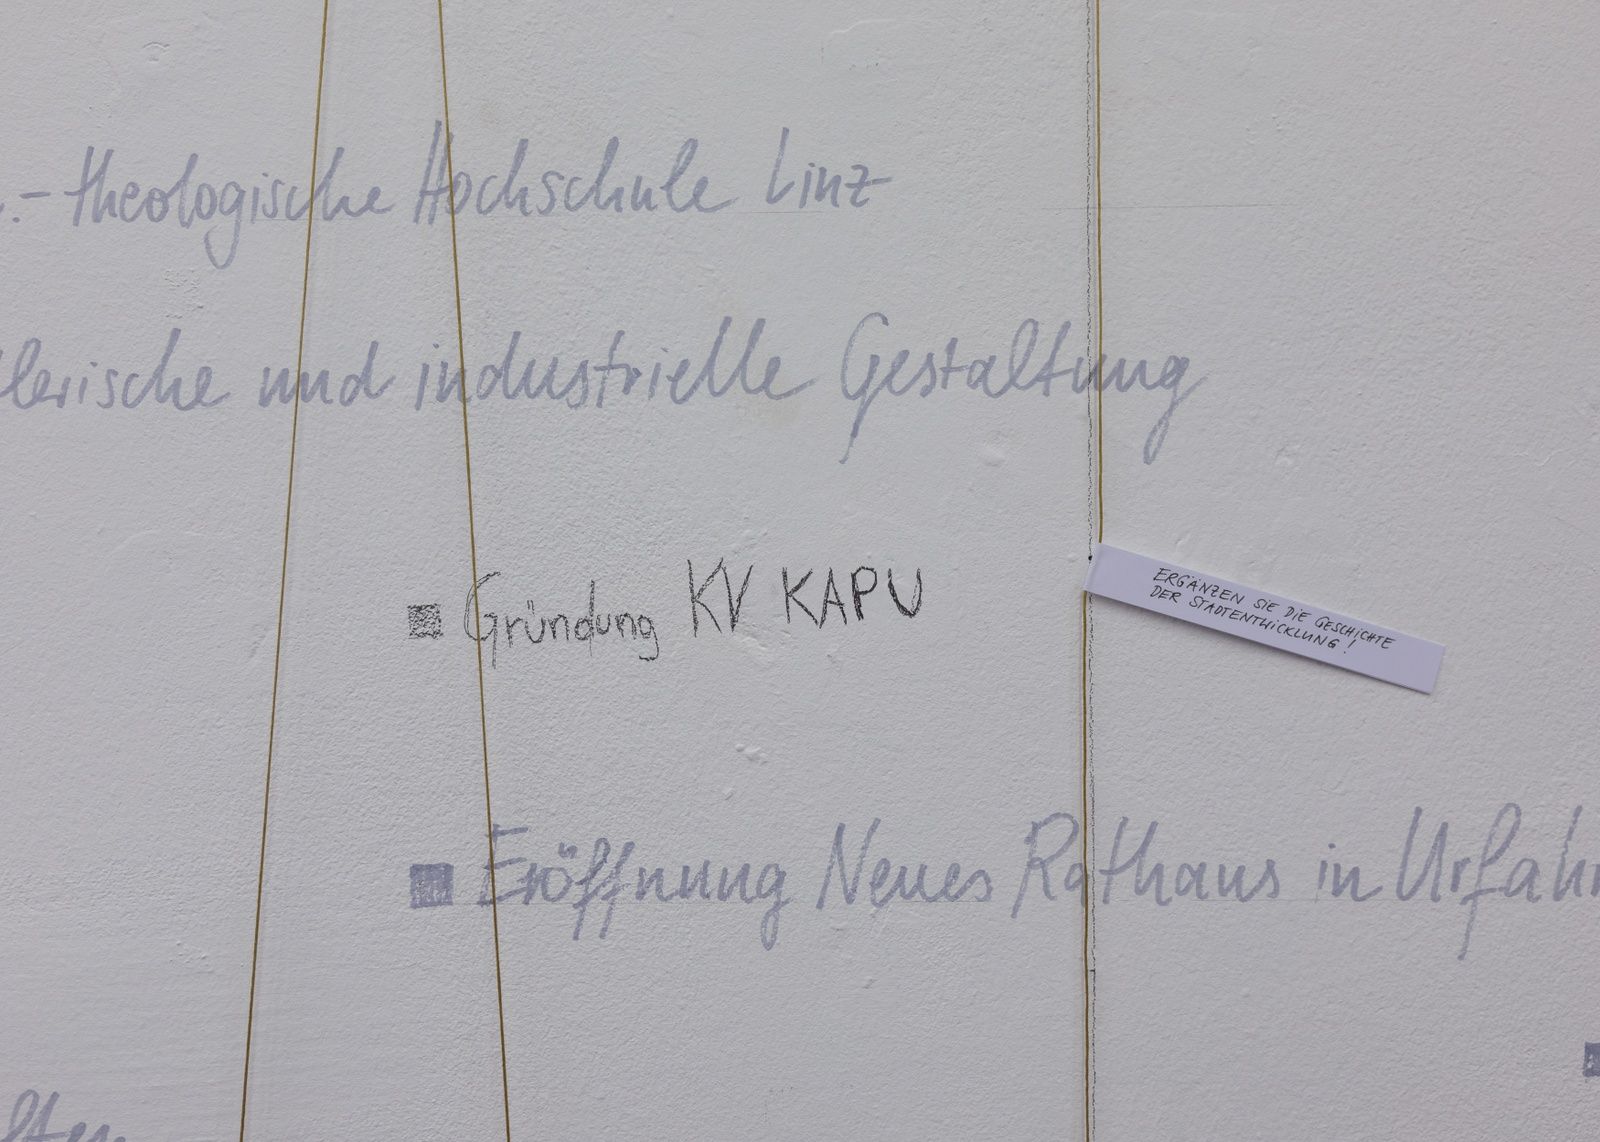 .- theologische Hochschule Linz
lerische und industrielle Gestaltung
Gründung KV KAPU
ERGÄNZEN SIE DIE GESCHICHTE
DER STADTENTWICKLUNG!
Eröffnung Neues Rathaus in Urfahr